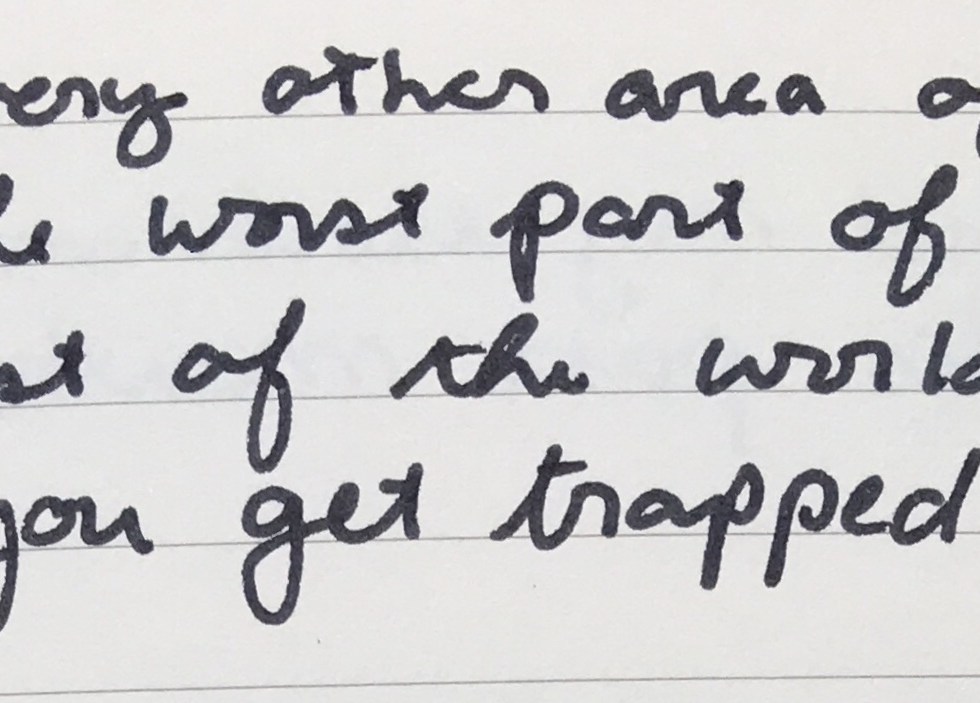 very other area of
worst part of
st of the world
you get trapped